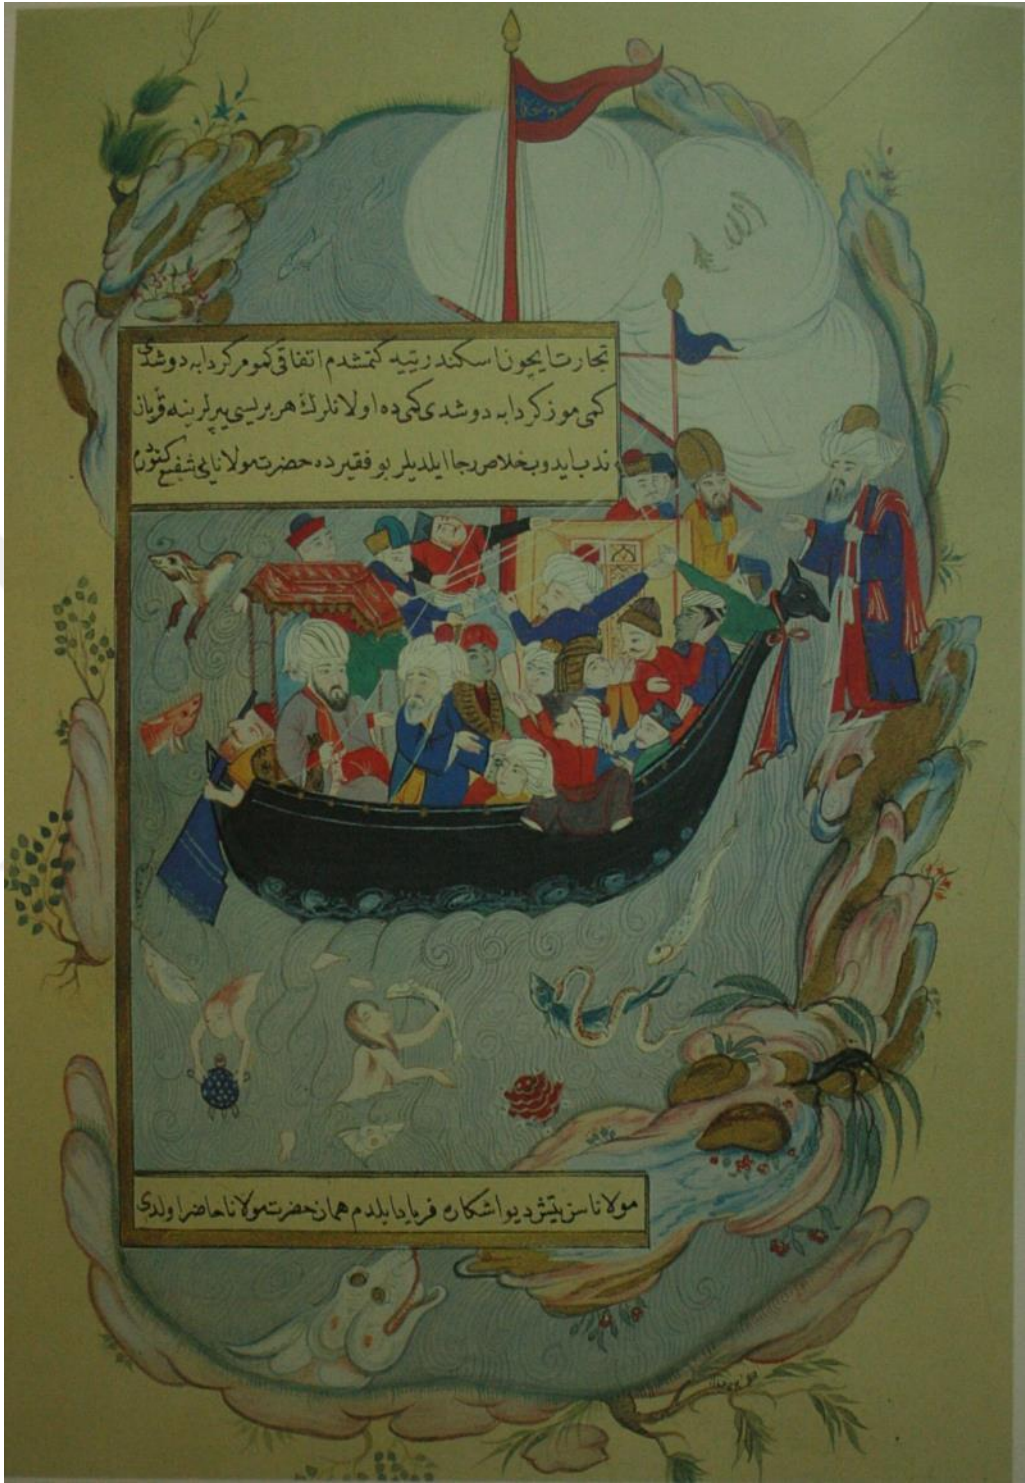 تجارت ایچون اسكندریّیه كتمشدم اتفاقی كمومر كردابه دوشدی
كمی موز كردابه دوشدی كمی ده اولانلرڭ هر بریسی پیرلرینه قربان
نذر ایدوب خلاص رجا ایلدیلر بو فقیر ده حضرت مولانایی شفیع كتوردم
مولانا سن یتیش دیو اشكاره فریاد ایلدم همان حضرت مولانا حاضر اولدی